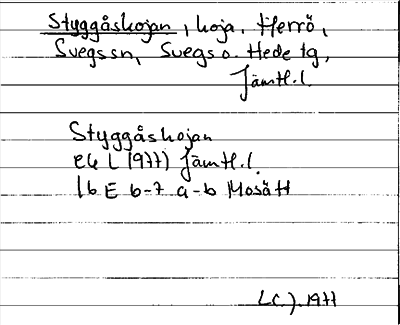 Styggåskojan, koja, Herrö,
Svegs sn, Svegs o. Hede tg,
Jämtl. l.
Styggåskojan
ek L (1977) Jämtl. l.
16 E 6-7 a-b Mosätt
LC.J. 1977